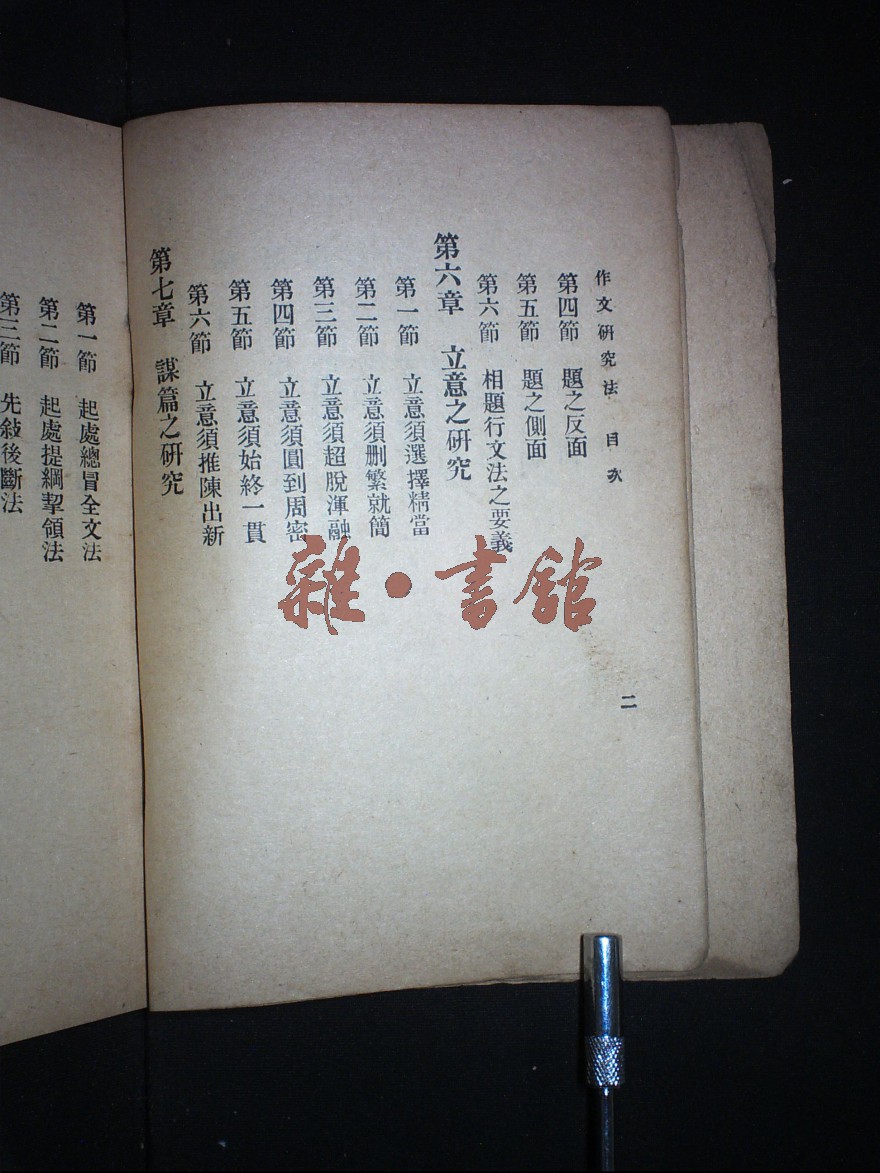 作文研究法 目次
第四節 題之反面
第五節 題之側面
第六節 相題行文法之要義
第六章 立意之研究
第一節 立意須選擇精當
第二節 立意須删繁就簡
第三節 立意須超脫渾融
第四節 立意須圓到周密
第五節 立意須始終一貫
第六節 立意須推陳出新
第七章 謀篇之研究
二
第一節 起處總冒全文法
第二節 起處提綱挈領法
第三節 先敍後斷法
雜·書館